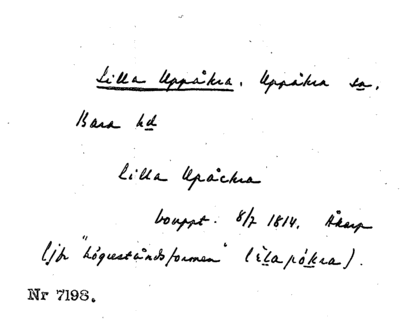 Lilla Uppåkra. Uppåkra sn.
Bara hd
Lilla Upåckra
bouppt. 8/7 1814. Åkarp
(jfr "högreståndsformen" (lèla påkra).
Nr 7198.